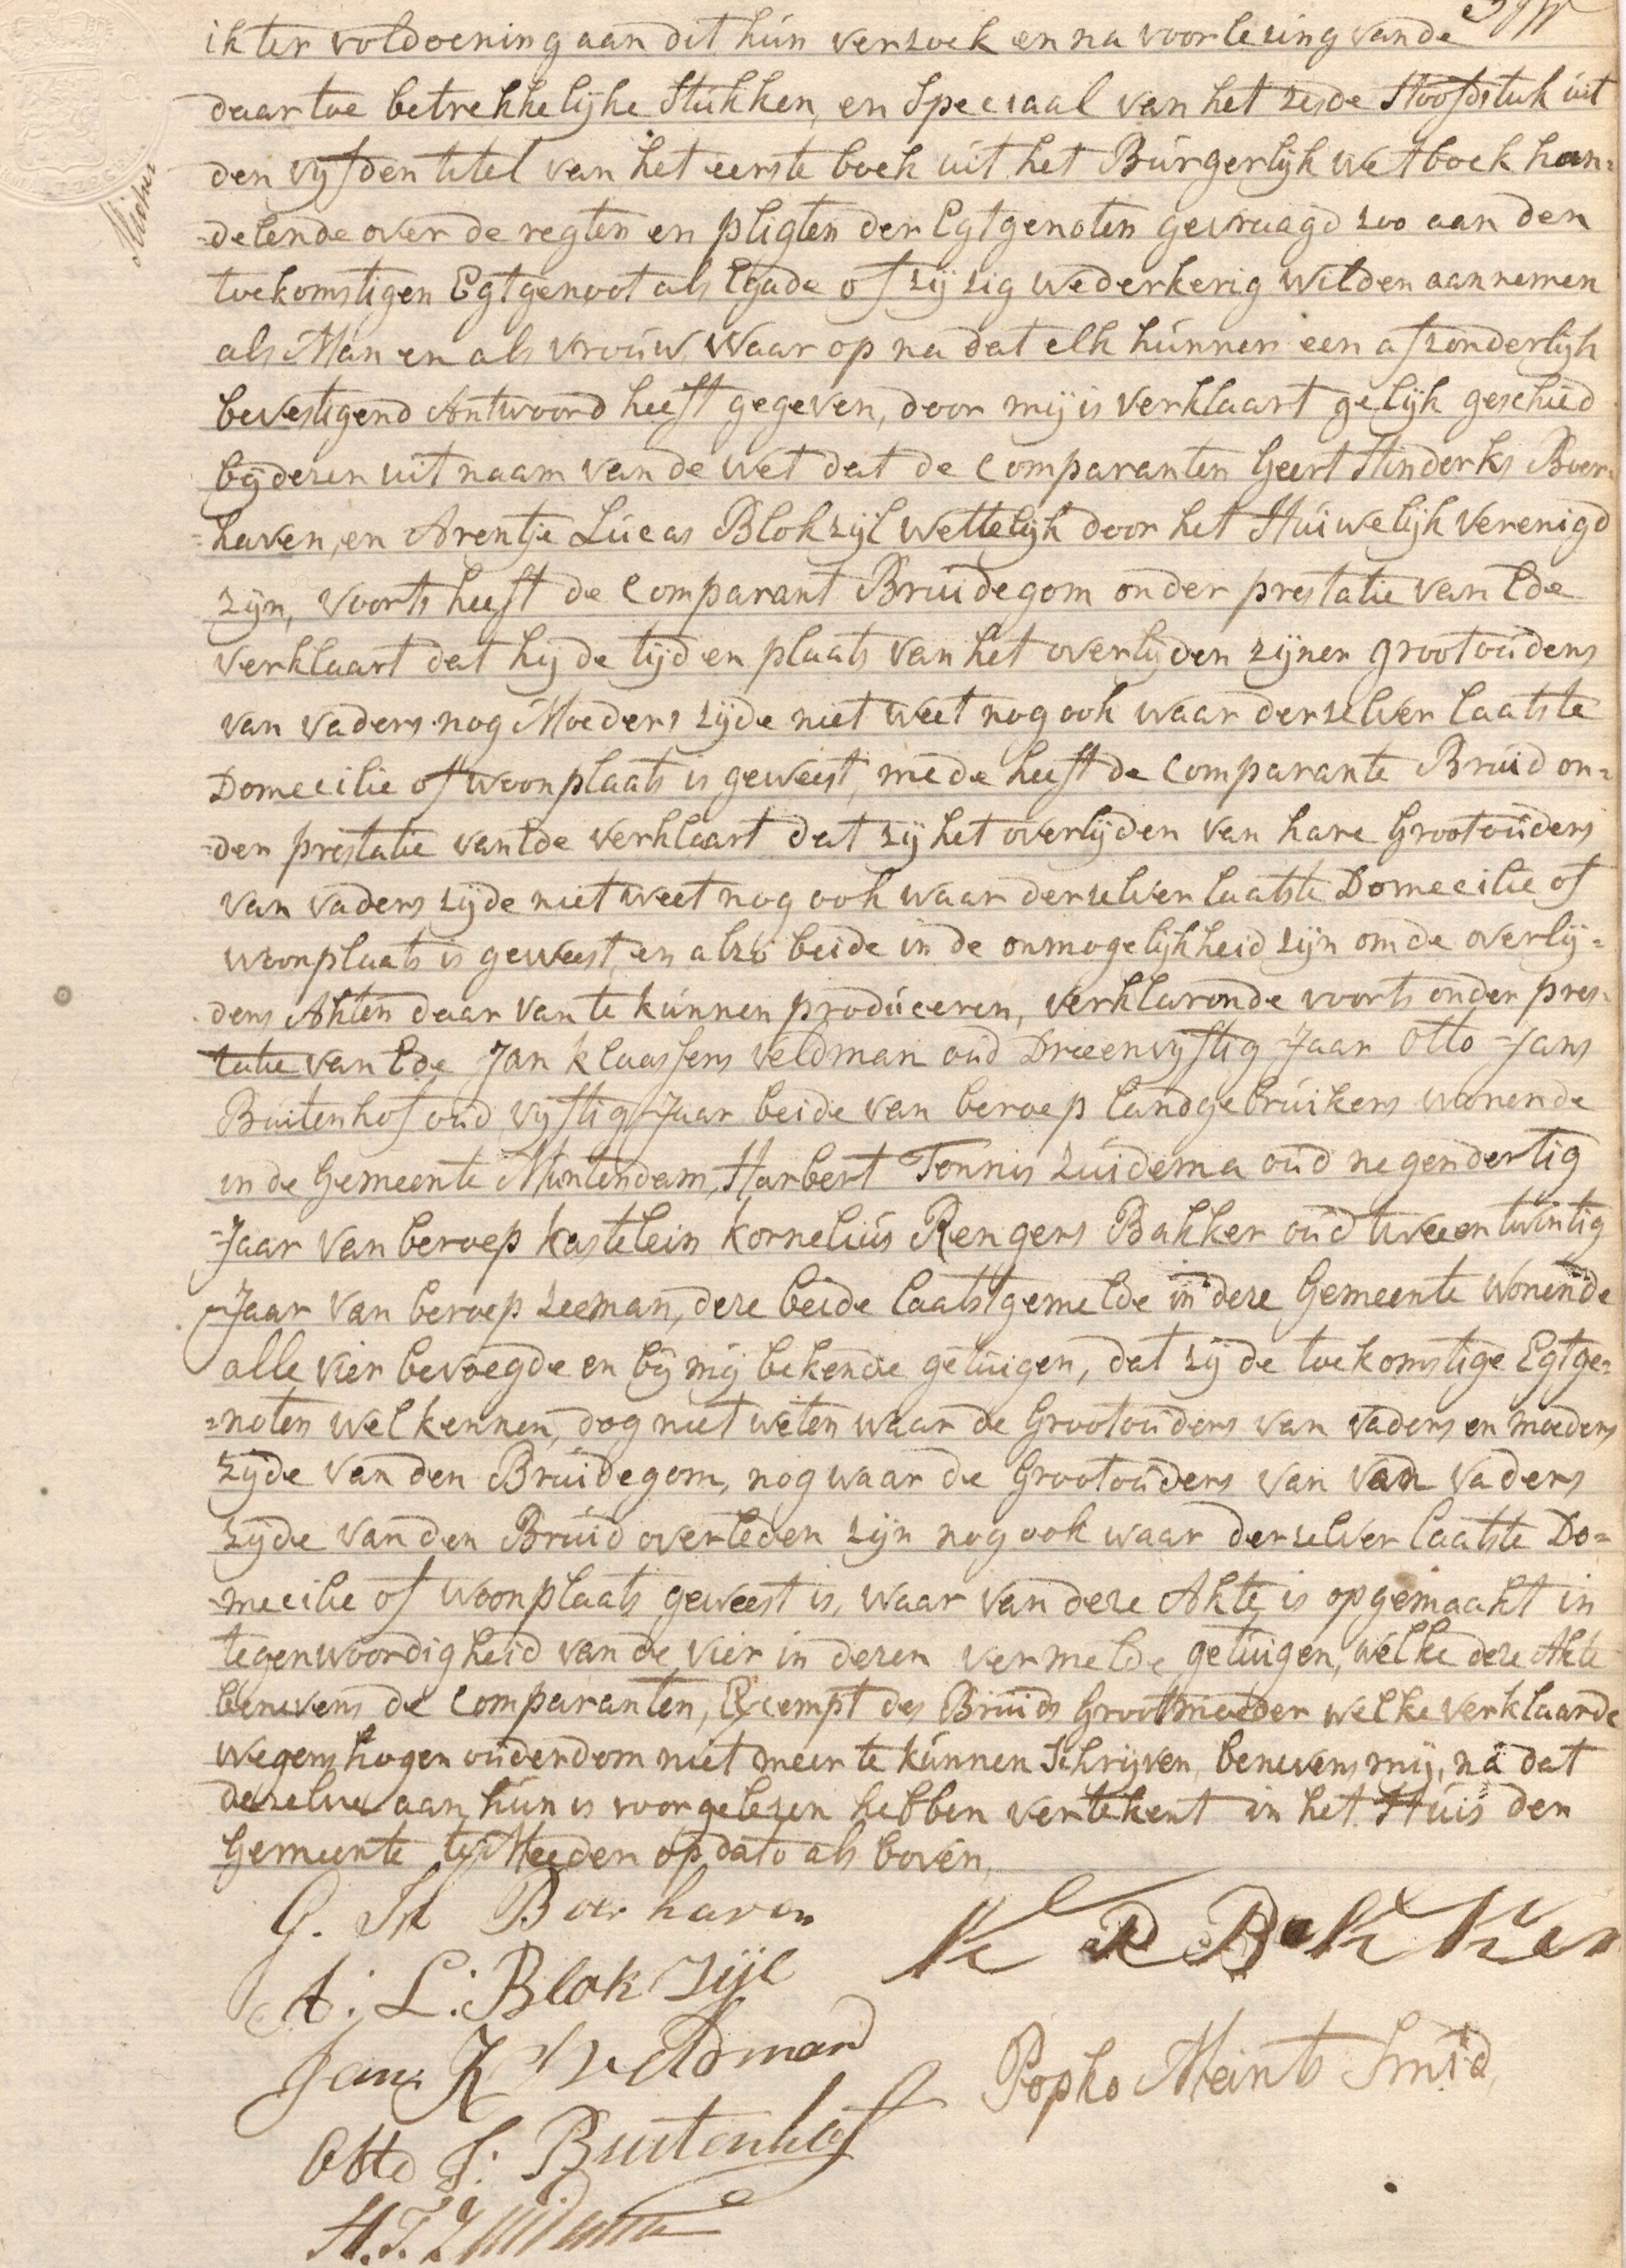 ik ter voldoening aan dit hún verzoek en na voorlezing van de
daartoe betrekkelijke Stukken, en Speciaal van het zesde Hoofdstuk uit
den vyfden titel van het eerste boek uit het Búrgerlijk wetboek han=
=delende over de regten en pligten der Egtgenoten gevraagd zoo aan den
toekomstigen Egtgenoot als Egade of zij zig wederkerig wilden aannemen
als Man en als vrouw, Waar op na dat elk húnner een afzonderlijk
bevestigend Antwoord heeft gegeven, door mij is verklaart gelijk geschied
bij dezen uit naam van de wet dat de Comparanten Geert Hinderks Boer=
=haven, en Arentje Lúcas Blokzijl wettelijk door het Huiwelijk verenigd
zijn, voorts heeft de Comparant Bruidegom onder prestatie van Ede
verklaart dat hij de tijd en plaats van het overlijden zijner grootoúders
van vaders nog Moeders zijde niet weet nog ook waar derzelver laatste
Domecilie of woonplaats is geweest, mede heeft de Comparante Bruid on=
=der prestatie van Ede verklaart dat zij het overlijden van hare Grootoúders
van vaders zijde niet weet nog ook waar derzelver laatste Domecilie of
woonplaats is geweest, en alzo beide in de onmogelijkheid zijn om de overlij=
dens Akten daar van te kúnnen prodúceren, verklarende voorts onder pres=
tatie van Ede Jan Klaassens Veldman oúd Drieenvyftig Jaar Otto Jans
Buitenhof oud vyftig Jaar beide van beroep landgebrúikers wonende
in de Gemeente Muntendam, Harbert Tonnis Zúidema oud negendertig
Jaar van beroep kastelein Kornelius Rengers Bakker oúd tweentwintig
Jaar van beroep zeeman, deze beide laatstgemelde in deze Gemeente wonende
alle vier bevoegde en bij mij bekende getuigen, dat zij de toekomstige Egtge=
=noten wel kennen, dog niet weten waar de Grootoúders van vaders en moeders
zijde van den Brúidegom, nog waar de Grootoúders van van vaders
zijde van den Brúid overleden zijn nog ook waar derzelver laatste Do=
mecilie of woonplaats geweest is, waar van deze Akte is opgemaakt in
tegenwoordigheid van de vier in dezen vermelde getuigen, welke deze Akte
benevens de Comparanten, Excempt des Bruids Grootmoeder welke verklaarde
wegens hogen oúderdom niet meer te kúnnen Schrijven, benevens mij, na dat
dezelve aan hún is voorgelezen hebben vertekent in het Húis der
Gemeente te Meeden op dato als boven,
G. H Boerhaven
K R Bakker
A: L: Blokzijl
Jan K Veldman
Popko Meints Smid,
Otto J: Buitenhof
H. T. Zuidema